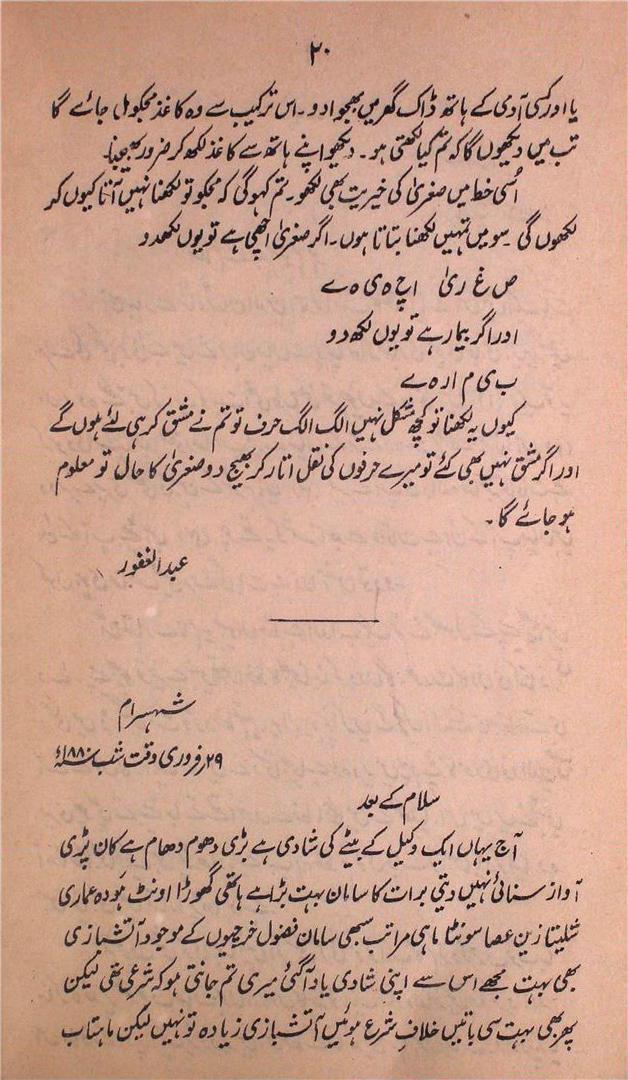 ۲۰
یا اور کسی آدمی کے ہاتھ ڈاک گھر میں بھجوا دو۔ اس ترکیب سے وہ کاغذ مجکو مل جائے گا
تب میں دیکھوں گا کہ تم کیا لکھتی ہو۔ دیکھو اپنے ہاتھ سے کاغذ لکھ کر ضرور بھیجنا۔
اُسی خط میں صغریٰ کی خیریت بھی لکھو۔ تم کہو گی کہ مجکو تو لکھنا نہیں آتا کیوں کر
لکھوں گی سو میں تمہیں لکھنا بتاتا ہوں۔ اگر صغریٰ اچھی ہے تو یوں لکھ دو
ص غ ریٰ اچ ہ ی ہ ے
اور اگر بیمار ہے تو یوں لکھ دو
ب ی م ار ہ ے
کیوں یہ لکھنا تو کچھ مشکل نہیں الگ الگ حرف تو تم نے مشق کر ہی لئے ہوں گے
اور اگر مشق نہیں بھی کئے تو میرے حرفوں کی نقل اتار کر بھیج دو صغریٰ کا حال تو معلوم
ہو جائے گا۔
عبد الغفور
شہسرام
۲۹ فروری وقت شب ۱۸۸۰ء
سلام کے بعد
آج یہاں ایک وکیل کے بیٹے کی شادی ہے بڑی دھوم دھام ہے کان پڑی
آواز سنائی نہیں دیتی برات کا سامان بہت بڑا ہے ہاتھی گھوڑا اونٹ ہودہ عماری
شلیتا زین عصا سونٹا ماہی مراتب سبھی سامان فضول خرچیوں کے موجود آتشبازی
بھی بہت مجھے اس سے اپنی شادی یاد آگئی میری تم جانتی ہو کہ شرعی تھی لیکن
پھر بھی بہت سی باتیں خلاف شرع ہوئیں آتشبازی زیادہ تو نہیں لیکن ماہتاب